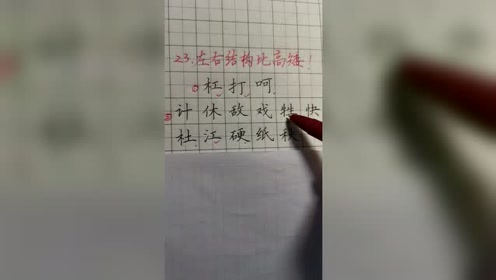 23.左右结构比高矮!
①杠打呵
②计休敌戏牲快
杜江硬纸秋